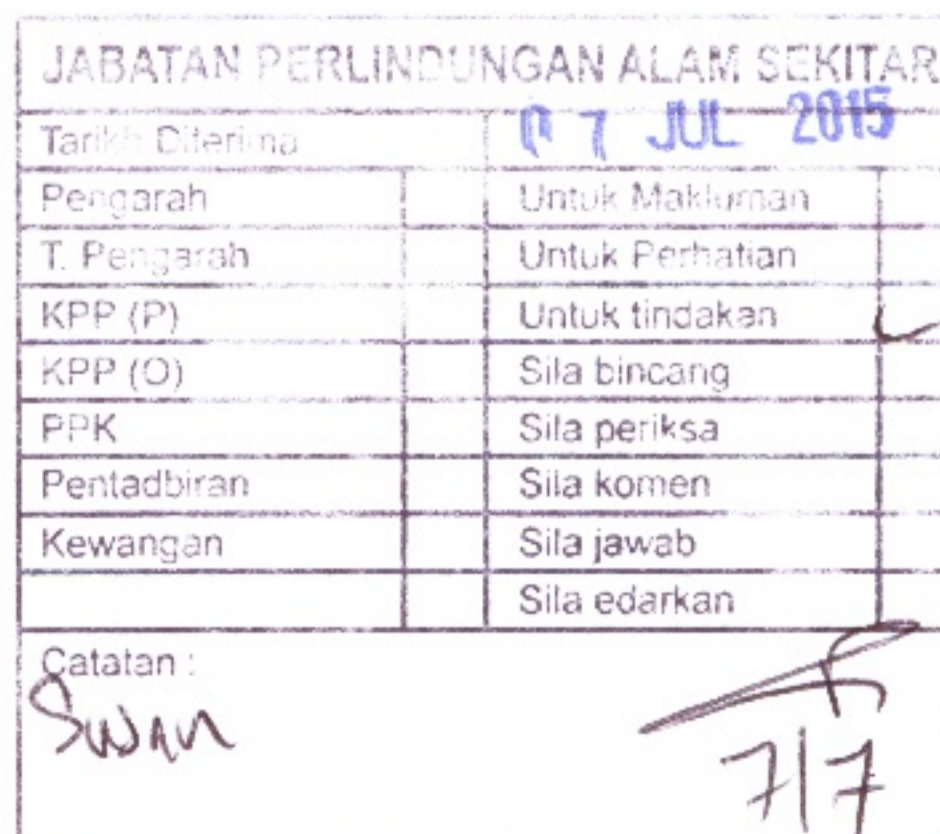 JABATAN PERLINDUNGAN ALAM SEKITAR
Tarikh Diterima 07 JUL 2015
Pengarah Untuk Makluman
T. Pengarah Untuk Perhatian
KPP (P) Untuk tindakan ✓
KPP (O) Sila bincang
PPK Sila periksa
Pentadbiran Sila komen
Kewangan Sila jawab
Sila edarkan
Catatan :
Swan
7/7